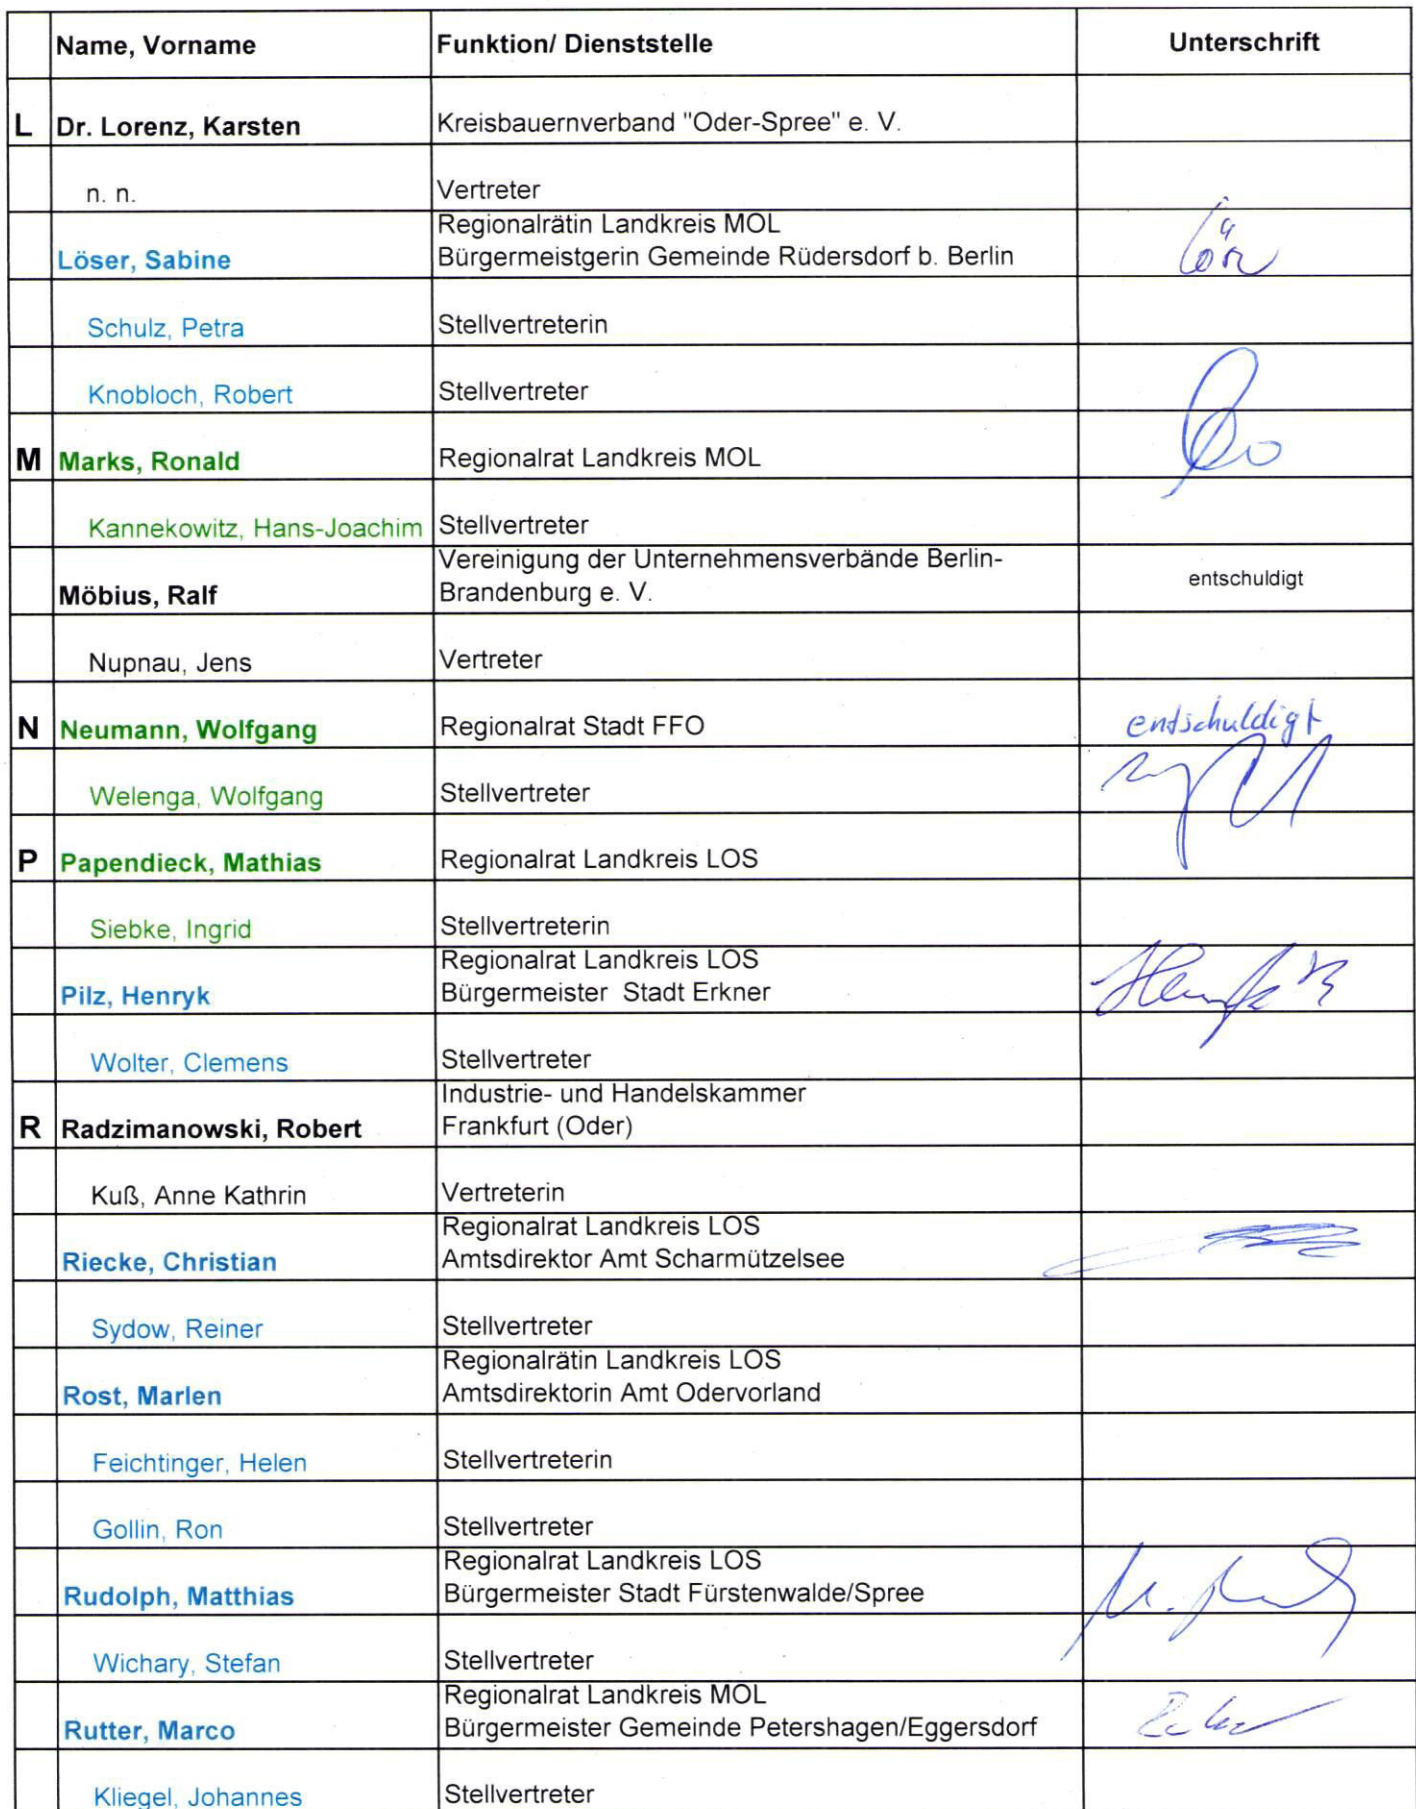 Name, Vorname Funktion/ Dienststelle Unterschrift
L Dr. Lorenz, Karsten Kreisbauernverband "Oder-Spree" e. V.
n. n. Vertreter
Regionalrätin Landkreis MOL
Löser, Sabine Bürgermeistgerin Gemeinde Rüdersdorf b. Berlin
Schulz, Petra Stellvertreterin
Knobloch, Robert Stellvertreter
M Marks, Ronald Regionalrat Landkreis MOL
Kannekowitz, Hans-Joachim Stellvertreter
Vereinigung der Unternehmensverbände Berlin-
Möbius, Ralf Brandenburg e. V. entschuldigt
Nupnau, Jens Vertreter
N Neumann, Wolfgang Regionalrat Stadt FFO entschuldigt
Welenga, Wolfgang Stellvertreter
P Papendieck, Mathias Regionalrat Landkreis LOS
Siebke, Ingrid Stellvertreterin
Regionalrat Landkreis LOS
Pilz, Henryk Bürgermeister Stadt Erkner
Wolter, Clemens Stellvertreter
Industrie- und Handelskammer
R Radzimanowski, Robert Frankfurt (Oder)
Kuß, Anne Kathrin Vertreterin
Regionalrat Landkreis LOS
Riecke, Christian Amtsdirektor Amt Scharmützelsee
Sydow, Reiner Stellvertreter
Regionalrätin Landkreis LOS
Rost, Marlen Amtsdirektorin Amt Odervorland
Feichtinger, Helen Stellvertreterin
Gollin, Ron Stellvertreter
Regionalrat Landkreis LOS
Rudolph, Matthias Bürgermeister Stadt Fürstenwalde/Spree
Wichary, Stefan Stellvertreter
Regionalrat Landkreis MOL
Rutter, Marco Bürgermeister Gemeinde Petershagen/Eggersdorf
Kliegel, Johannes Stellvertreter